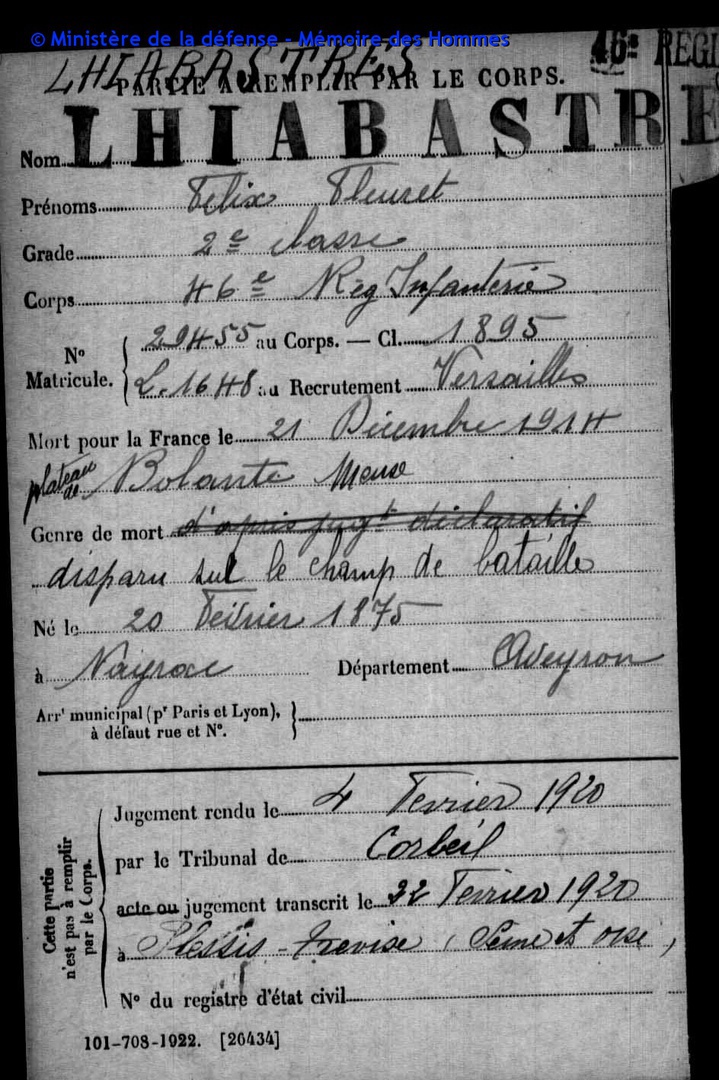 © Ministère de la défense - Mémoire des Hommes
46e REGI
LHIABASTRES
PARTIE A REMPLIR PAR LE CORPS.
Nom LHIABASTRE
Prénoms Felix Fleuret
Grade 2e classe
Corps 46e Rég Infanterie
No Matricule. { 29455 au Corps. — Cl. 1895
L. 1648 au Recrutement Versailles
Mort pour la France le 21 Décembre 1914
plateau de Bolante Meuse
Genre de mort d'après jugt déclaratif
disparu sur le champ de bataille
Né le 20 Février 1875
à Nayrac Département Aveyron
Arrt municipal (pr Paris et Lyon), }
à défaut rue et No.
Cette partie n'est pas à remplir par le Corps.
Jugement rendu le 4 Fevrier 1920
par le Tribunal de Corbeil
acte ou jugement transcrit le 22 Fevrier 1920
à Plessis-Trevise (Seine et oise)
No du registre d'état civil
101-708-1922. [26434]